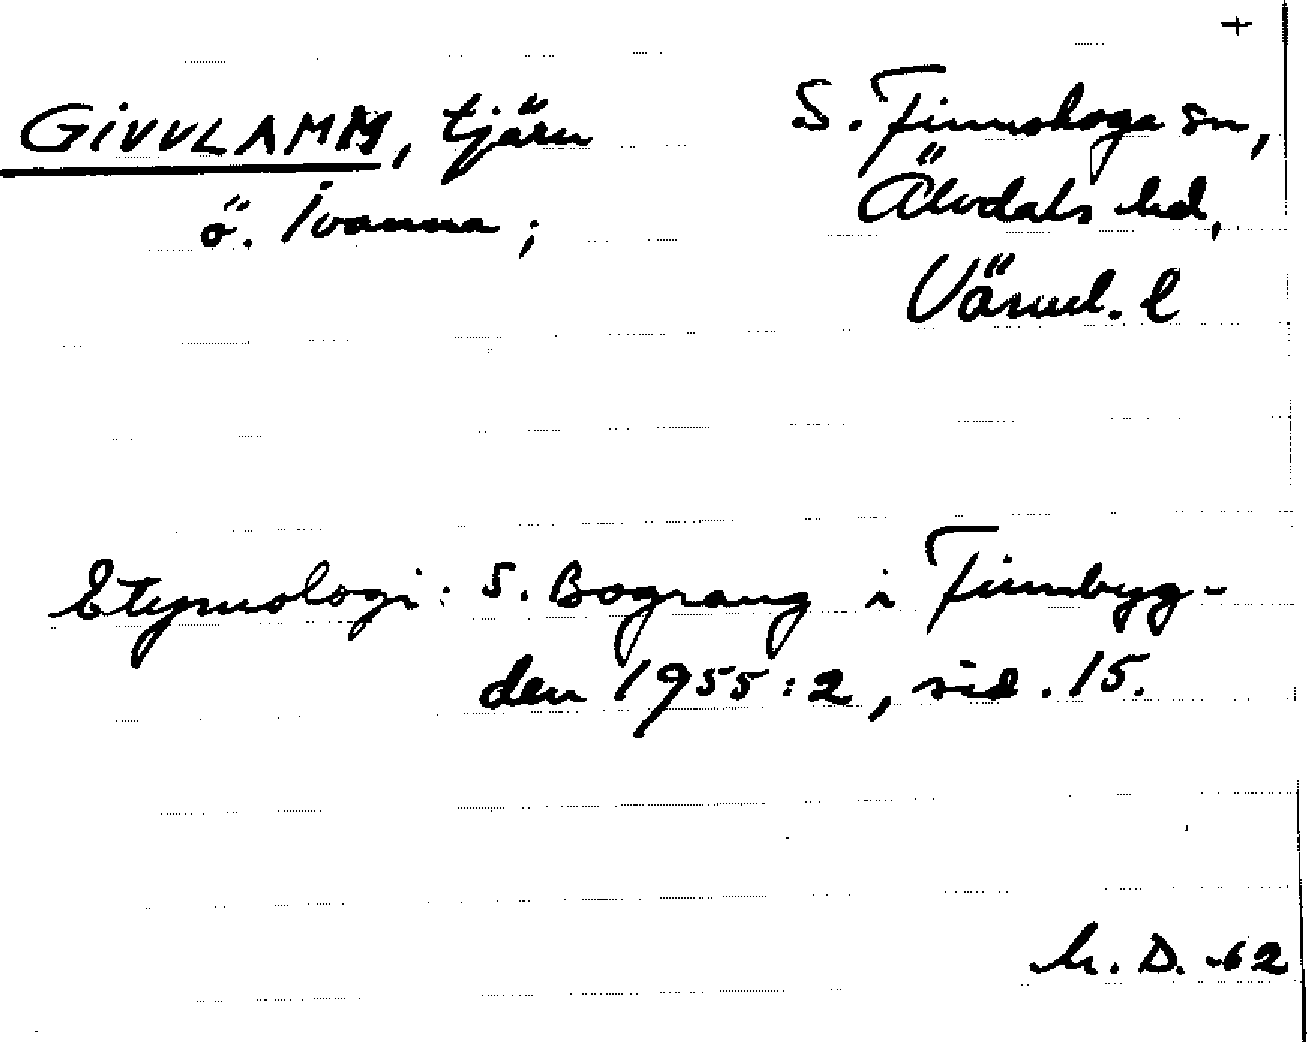 +
GIVVLAMM, tjärn S. Finnskoga sn,
ö. Ivanna; Älvdals hd,
Värml. l
Etymologi: S. Bograng i Finnbyg-
den 1955:2, sid. 15.
D. -62